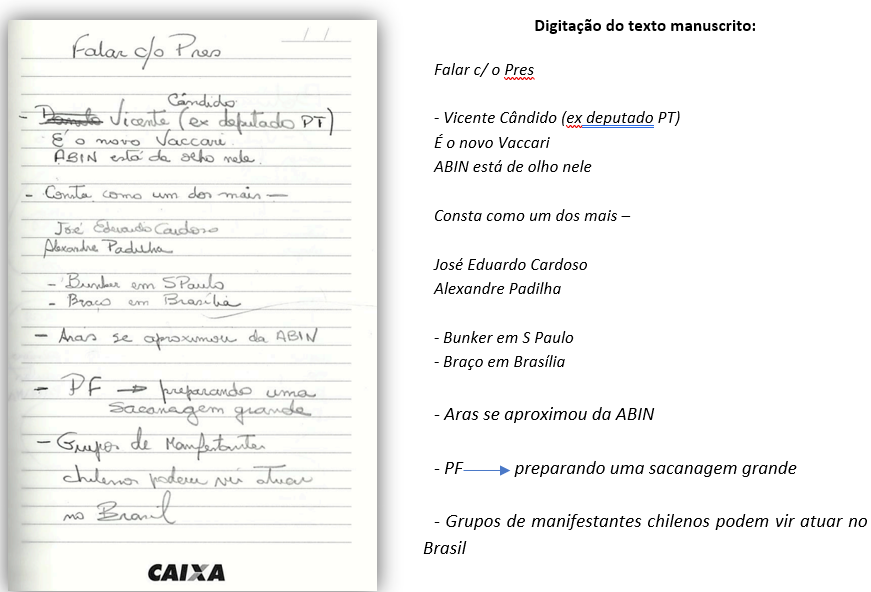 Falar c/o Pres
/ /
Cândido
- Vicente (ex deputado PT)
É o novo Vaccari.
ABIN está de olho nele.
- Consta como um dos mais —
José Eduardo Cardoso
Alexandre Padilha
- Bunker em SPaulo
- Braço em Brasília
- Aras se aproximou da ABIN
- PF → preparando uma
sacanagem grande
- Grupos de Manifestantes
chilenos podem vir atuar
no Brasil
CAIXA
Digitação do texto manuscrito:
Falar c/ o Pres
- Vicente Cândido (ex deputado PT)
É o novo Vaccari
ABIN está de olho nele
Consta como um dos mais –
José Eduardo Cardoso
Alexandre Padilha
- Bunker em S Paulo
- Braço em Brasília
- Aras se aproximou da ABIN
- PF → preparando uma sacanagem grande
- Grupos de manifestantes chilenos podem vir atuar no
Brasil